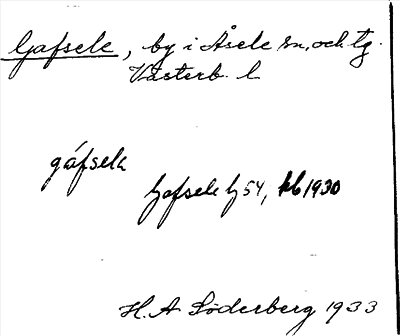 Gafsele, by i Åsele sn. och tg.
Västerb. l
gáfsela
Gafsele by 54, kb 1930
H. A Söderberg 1933